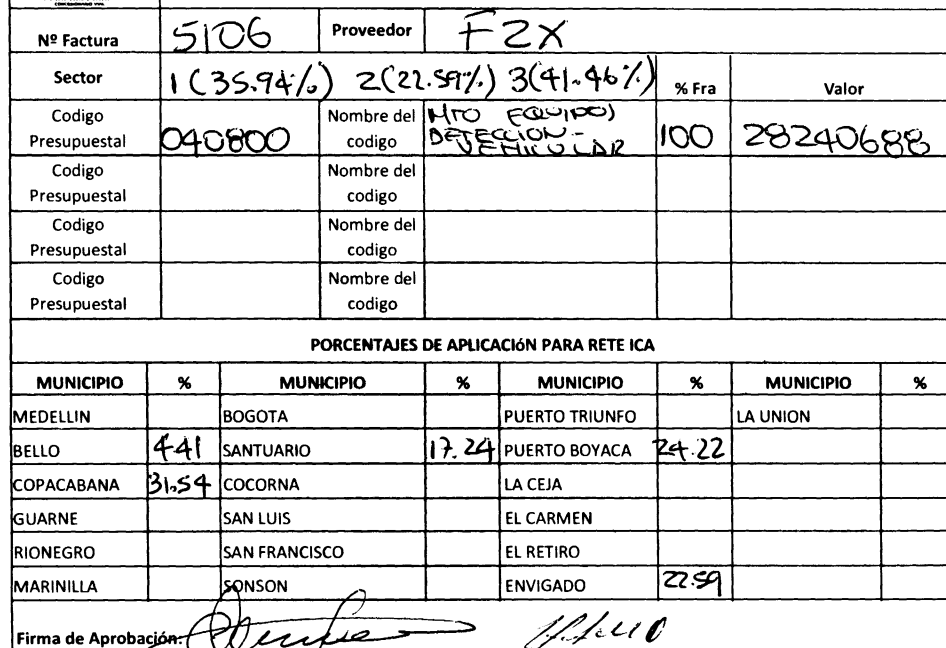 Nº Factura 5106 Proveedor F2X
Sector 1 (35.94%) 2(22.59%) 3(41.46%) % Fra Valor
Codigo Presupuestal 040800 Nombre del codigo MTO EQUIPOS DETECCION - VEHICULAR 100 28240688
Codigo Presupuestal Nombre del codigo
Codigo Presupuestal Nombre del codigo
Codigo Presupuestal Nombre del codigo
PORCENTAJES DE APLICACIÓN PARA RETE ICA
MUNICIPIO % MUNICIPIO % MUNICIPIO % MUNICIPIO %
MEDELLIN BOGOTA PUERTO TRIUNFO LA UNION
BELLO 4.41 SANTUARIO 17.24 PUERTO BOYACA 24.22
COPACABANA 31.54 COCORNA LA CEJA
GUARNE SAN LUIS EL CARMEN
RIONEGRO SAN FRANCISCO EL RETIRO
MARINILLA SONSON ENVIGADO 22.59
Firma de Aprobación: